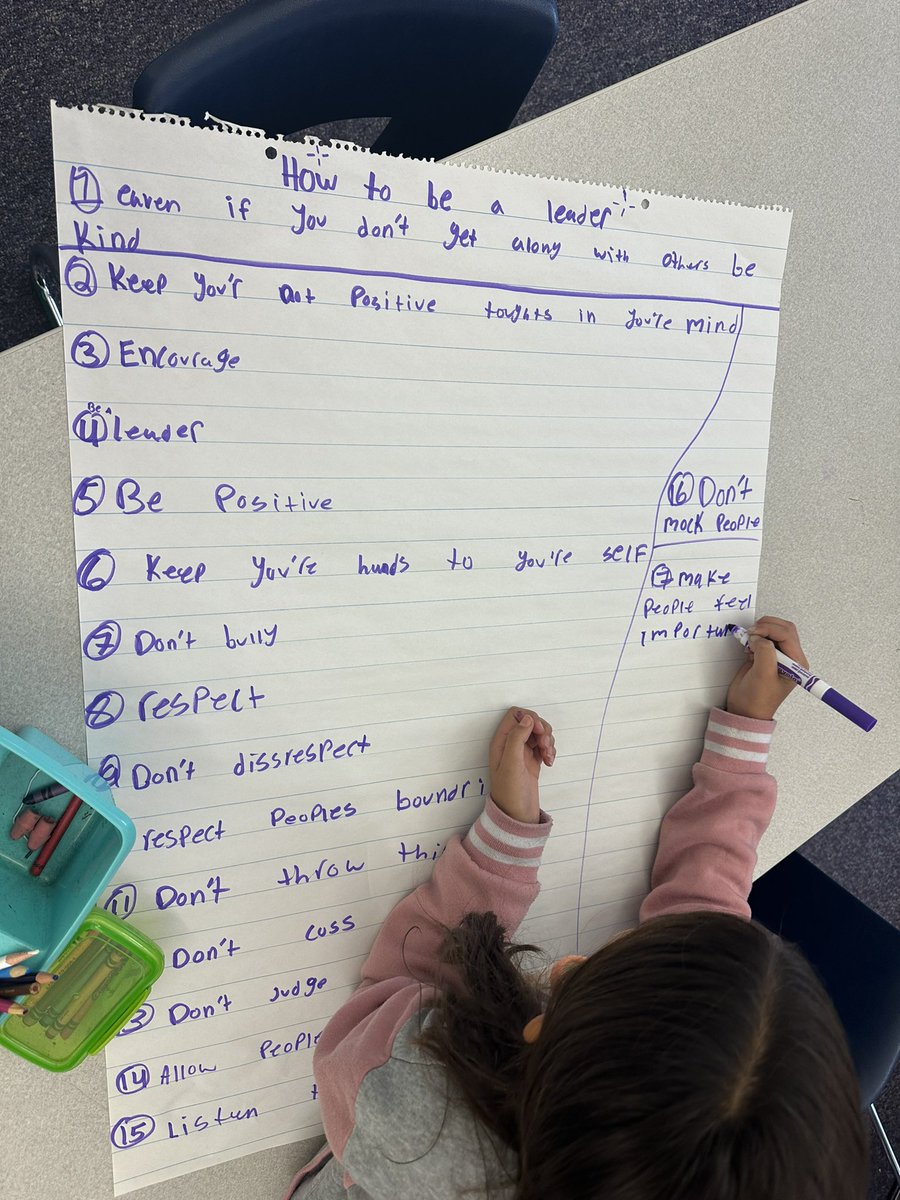 How to be a leader
1 euven if you don't get along with others be
Kind
2 Keep you'r not Positive toughts in you're mind
3 Encourage
Be A
4 leader
5 Be Positive
6 Keep you're hands to you're self
7 Don't bully
8 respect
9 Don't dissrespect
respect Peoples boundri
11 Don't throw thi
Don't cuss
3 Don't Judge
14 Allow People
15 Listen t
16 Don't
mock People
make
People feel
importan